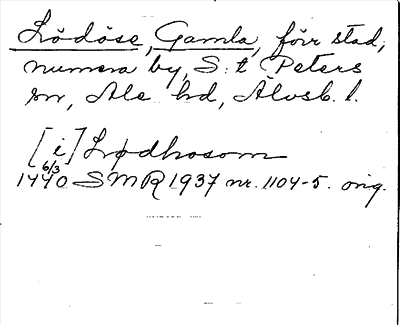 Lödöse, Gamla, förr stad,
numera by, S:t Peters
sn, Ale hd, Älvsb. l.
[i] Lødhosom
6/3
1440 SMR 1937 nr. 1104-5. orig.